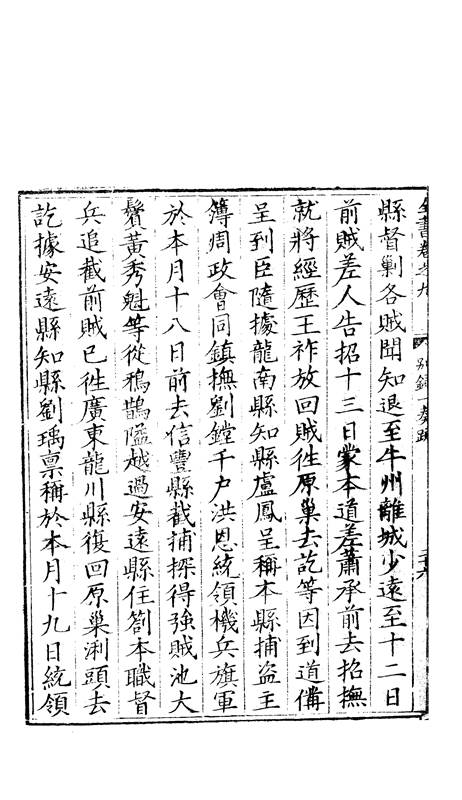 全書卷之九 别錄一 奏疏 二十六
縣督剿各賊聞知退至牛州離城少遠至十二日
前賊差人告招十三日蒙本道差蕭承前去招撫
就將經歷王祚放回賊徃原巢去訖等因到道備
呈到臣隨據龍南縣知縣盧鳳呈稱本縣捕盜主
簿周政會同鎮撫劉鏜千户洪恩統領機兵旗軍
於本月十八日前去信豐縣截捕探得強賊池大
鬢黄秀魁等從鴉鵲隘越過安遠縣住劄本職督
兵追截前賊已徃廣東龍川縣復回原巢浰頭去
訖據安遠縣知縣劉瑀禀稱於本月十九日統領